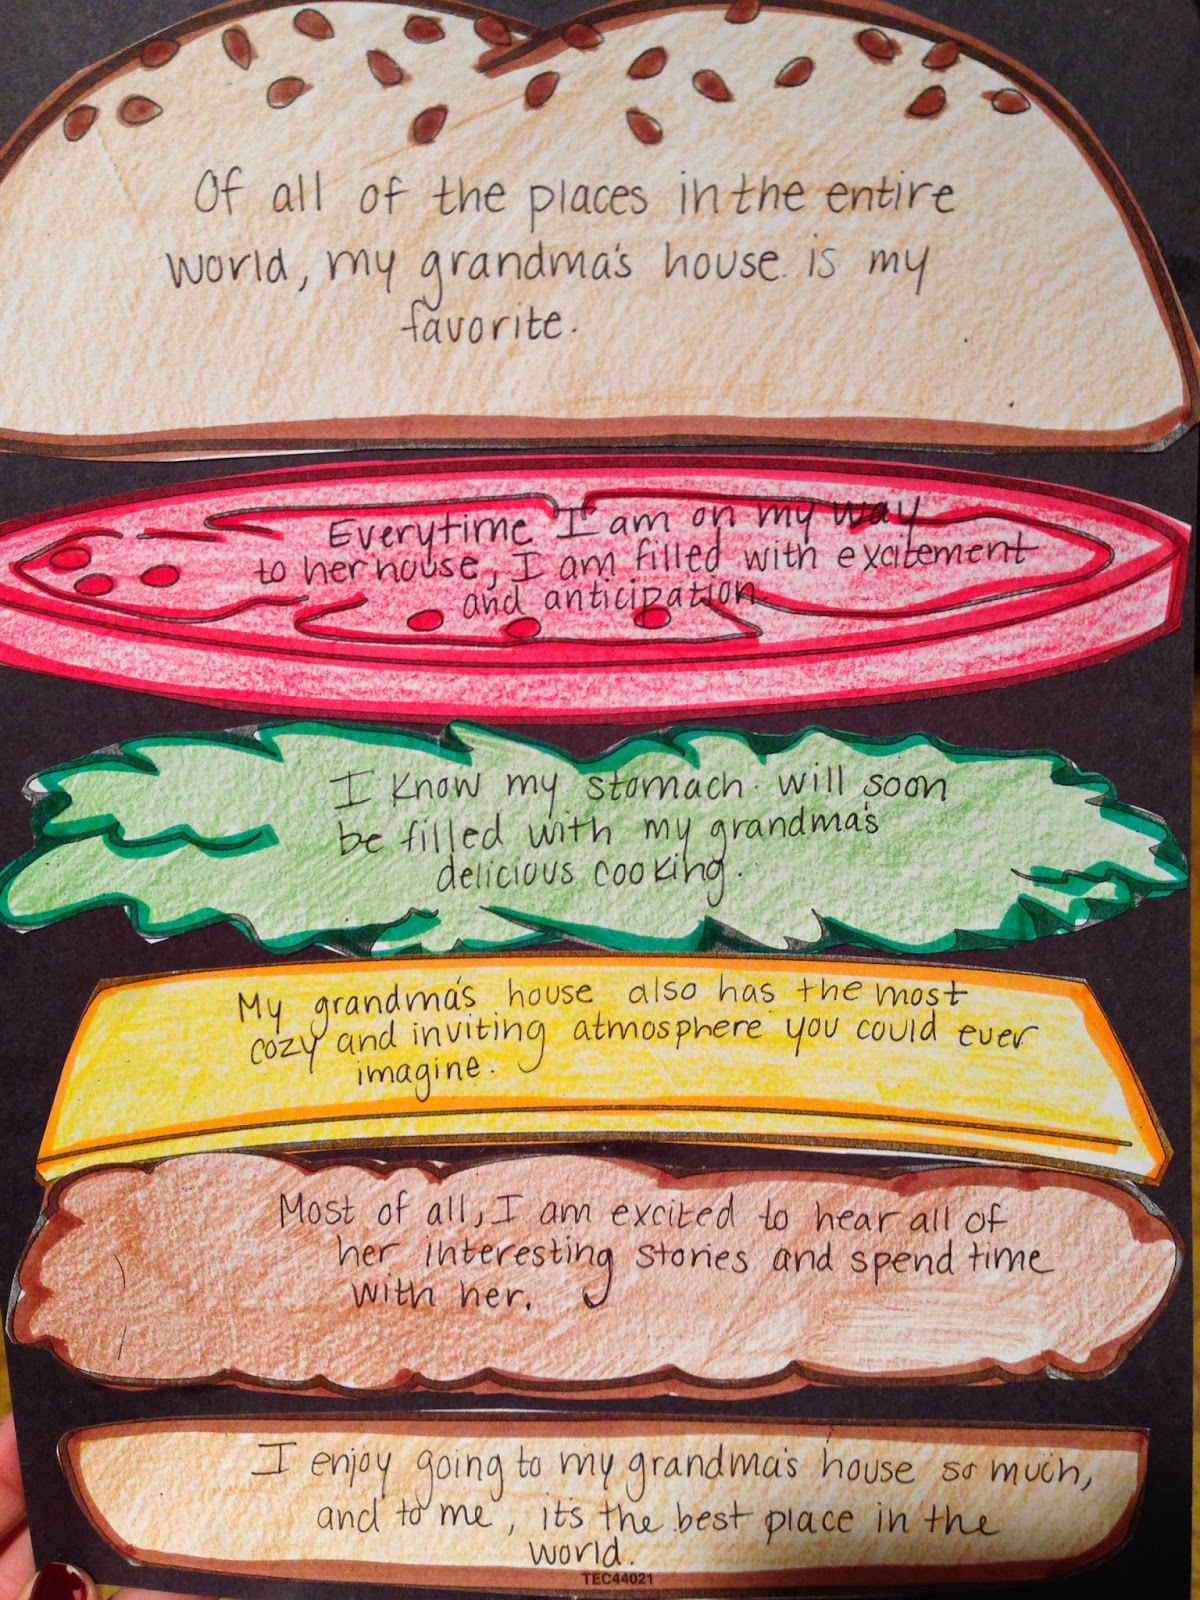 Of all of the places in the entire
world, my grandma's house is my
favorite.
Everytime I am on my way
to her house, I am filled with excitement
and anticipation.
I know my stomach will soon
be filled with my grandma's
delicious cooking.
My grandma's house also has the most
cozy and inviting atmosphere you could ever
imagine.
Most of all, I am excited to hear all of
her interesting stories and spend time
with her.
I enjoy going to my grandma's house so much,
and to me, it's the best place in the
world.
TEC44021